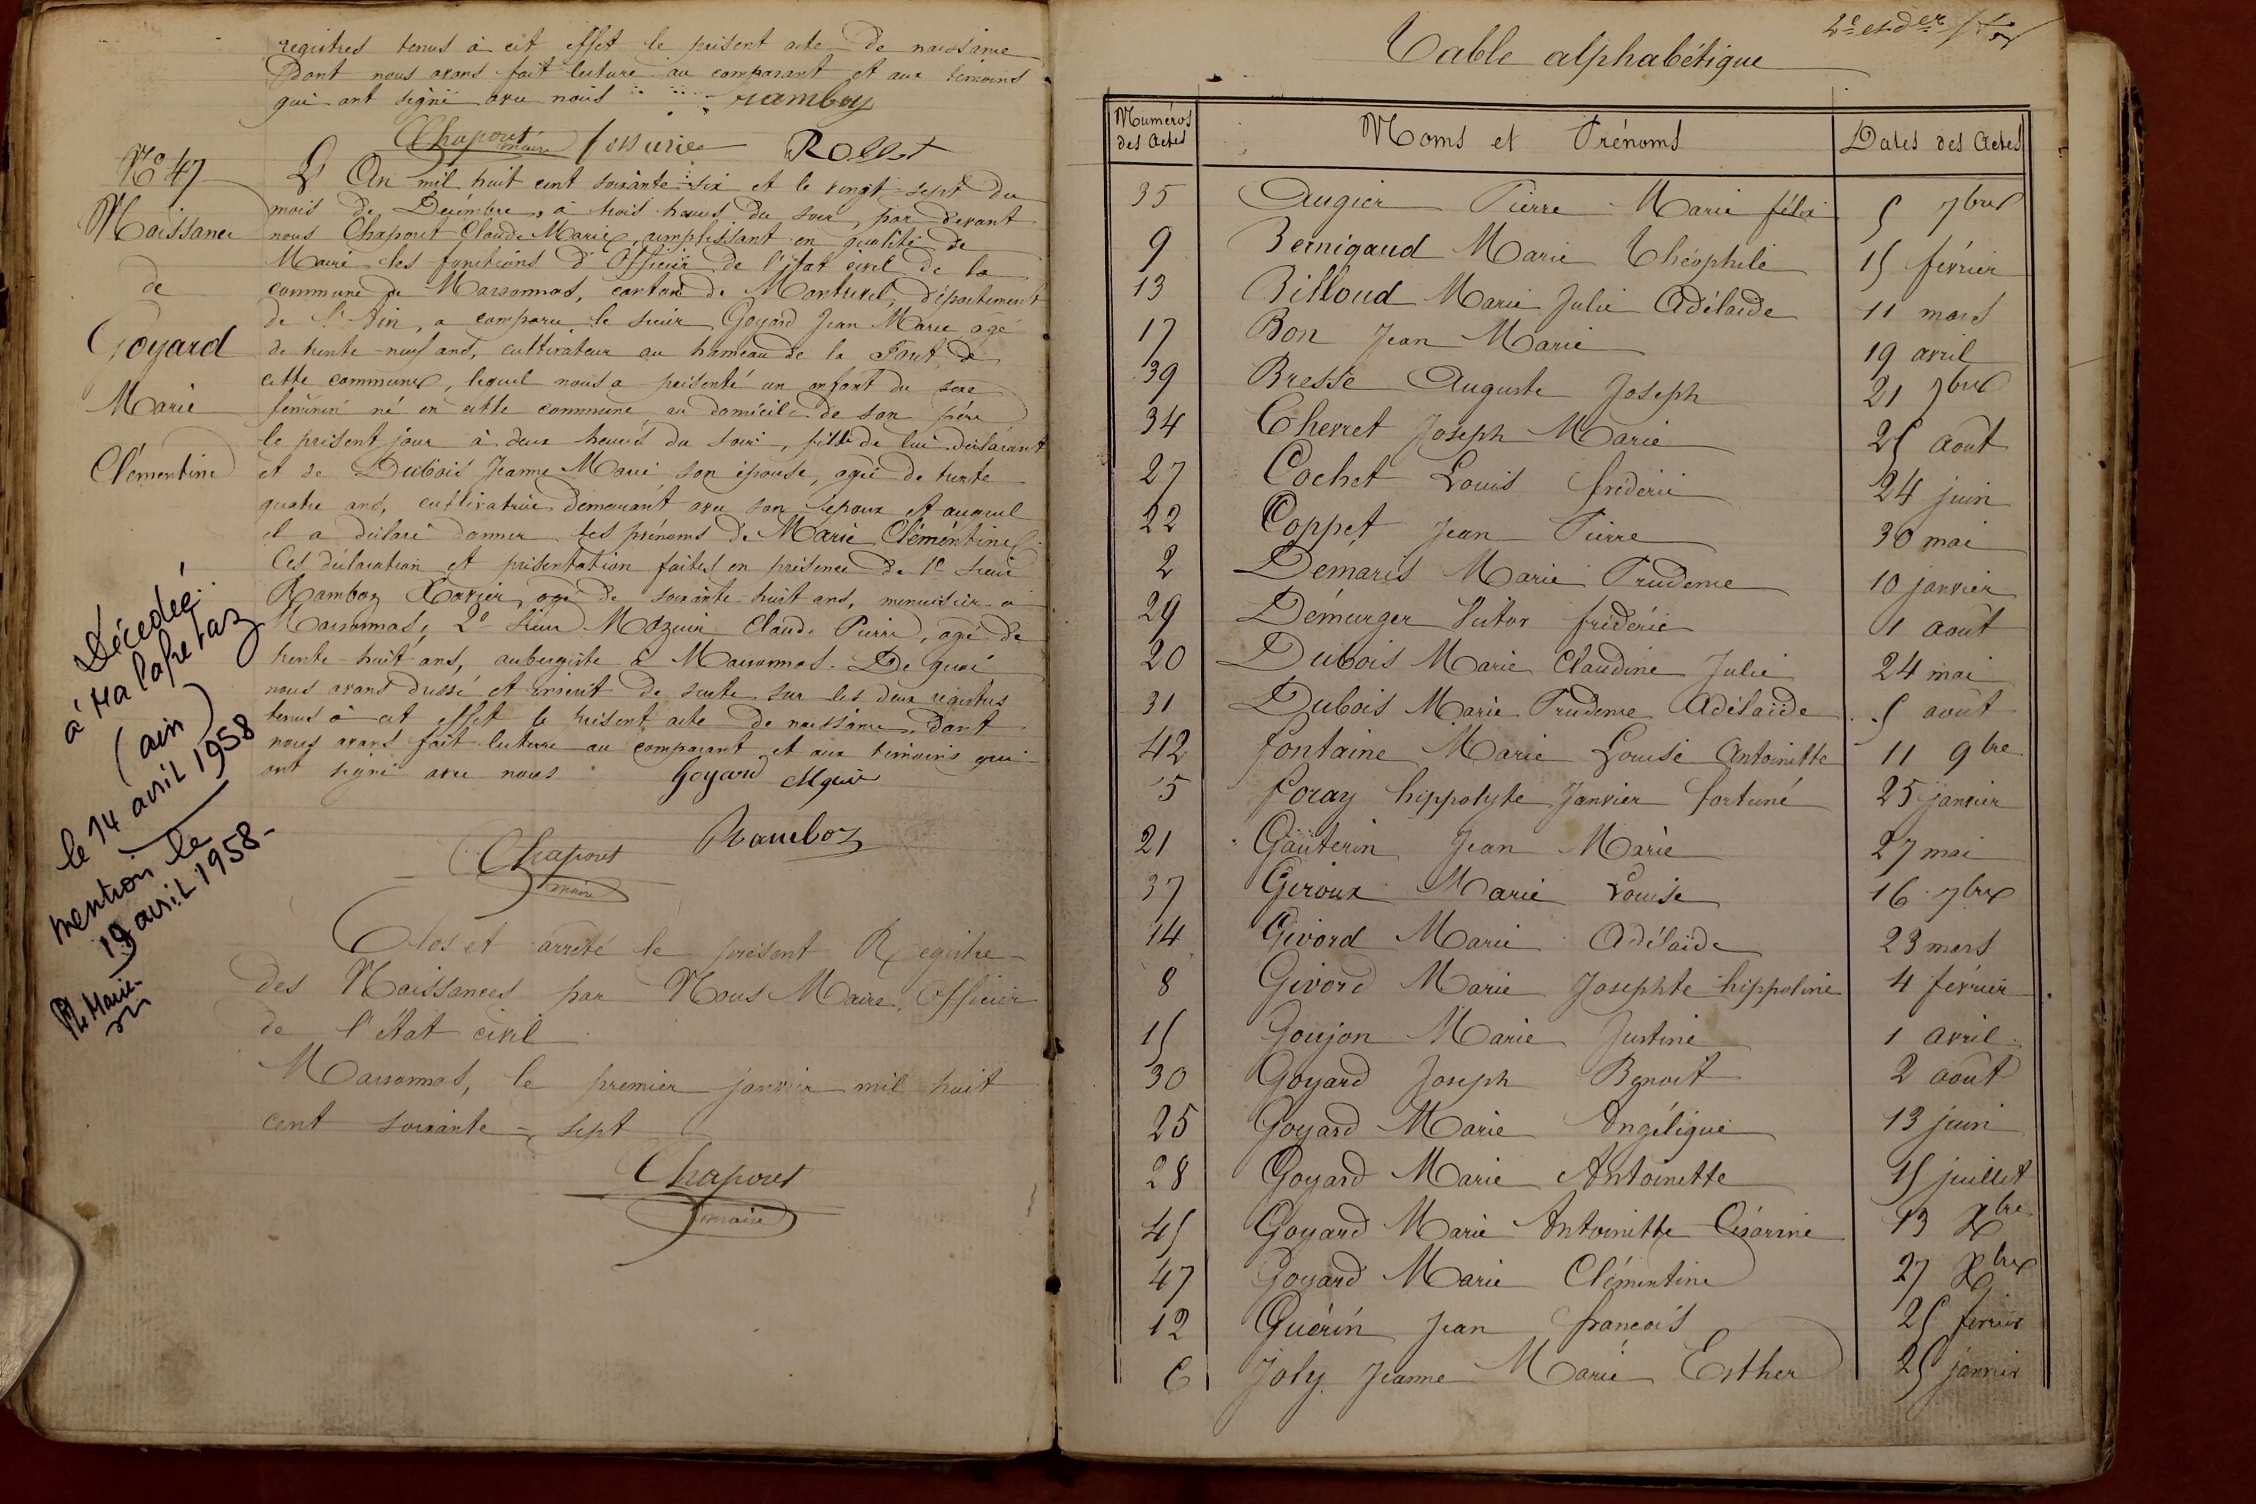 registres tenus à cet effet le présent acte de naissance
dont nous avons fait lecture au comparant et aux témoins
qui ont signé avec nous
Chapout maire
Rollet
N° 47
Naissance
de
Goyard
Marie
Clémentine
L'An mil huit cent soixante-six et le vingt-sept du
mois de Décembre, à trois heures du soir, par devant
nous Chapout Claude Marie, remplissant en qualité de
Maire les fonctions d'Officier de l'état civil de la
commune de Marsonnas, canton de Montrevel, département
de l'Ain, a comparu le sieur Goyard Jean Marie âgé
de trente-neuf ans, cultivateur au hameau de la Font de
cette commune, lequel nous a présenté un enfant du sexe
féminin né en cette commune au domicile de son père
le présent jour à deux heures du soir, fille de lui déclarant
et de Dubois Jeanne Marie son épouse, âgée de trente
quatre ans, cultivatrice demeurant avec son époux et auquel
il a déclaré donner les prénoms de Marie Clémentine.
Ces déclaration et présentation faites en présence de 1° sieur
Ramboz Xavier, âgé de soixante-huit ans, menuisier à
Marsonnas, 2° sieur Mazuir Claude Pierre, âgé de
trente-huit ans, aubergiste à Marsonnas. De quoi
nous avons dressé et inscrit de suite sur les deux registres
tenus à cet effet le présent acte de naissance dont
nous avons fait lecture au comparant et aux témoins qui
ont signé avec nous
Goyard
Ramboz
Chapout
maire
Décedée
à Malafretaz
(ain)
le 14 avril 1958
mention le
19 avril 1958-
Clos et arrêté le présent Registre
des Naissances par Nous Maire, Officier
de l'état civil
Marsonnas, le premier janvier mil huit
cent soixante-sept
Chapout
maire
2e et der
Table alphabétique
Numéros des Actes Noms et Prénoms Dates des Actes
35 Augier Pierre Marie félix 5 7bre
9 Bernigaud Marie Théophile 15 février
13 Billoud Marie Julie Adélaïde 11 mars
17 Bon Jean Marie 19 avril
39 Bresse Auguste Joseph 21 7bre
34 Cherret Joseph Marie 25 août
27 Cochet Louis frédéric 24 juin
22 Coppet Jean Pierre 30 mai
2 Démaris Marie Prudence 10 janvier
29 Démurger Victor frédéric 1 août
20 Dubois Marie Claudine Julie 24 mai
31 Dubois Marie Prudence Adélaïde 5 août
42 fontaine Marie Louise Antoinette 11 9bre
5 foray hippolyte Janvier fortuné 25 janvier
21 Gauterin Jean Marie 27 mai
37 Giroux Marie Louise 16 7bre
14 Givord Marie Adélaïde 23 mars
8 Givord Marie Josephte hippoline 4 février
15 Goujon Marie Justine 1 avril
30 Goyard Joseph Benoit 2 août
25 Goyard Marie Angélique 13 juin
28 Goyard Marie Antoinette 15 juillet
45 Goyard Marie Antoinette Césarine 13 Xbre
47 Goyard Marie Clémentine 27 Xbre
12 Guérin Jean françois 25 février
6 Joly Jeanne Marie Esther 25 janvier